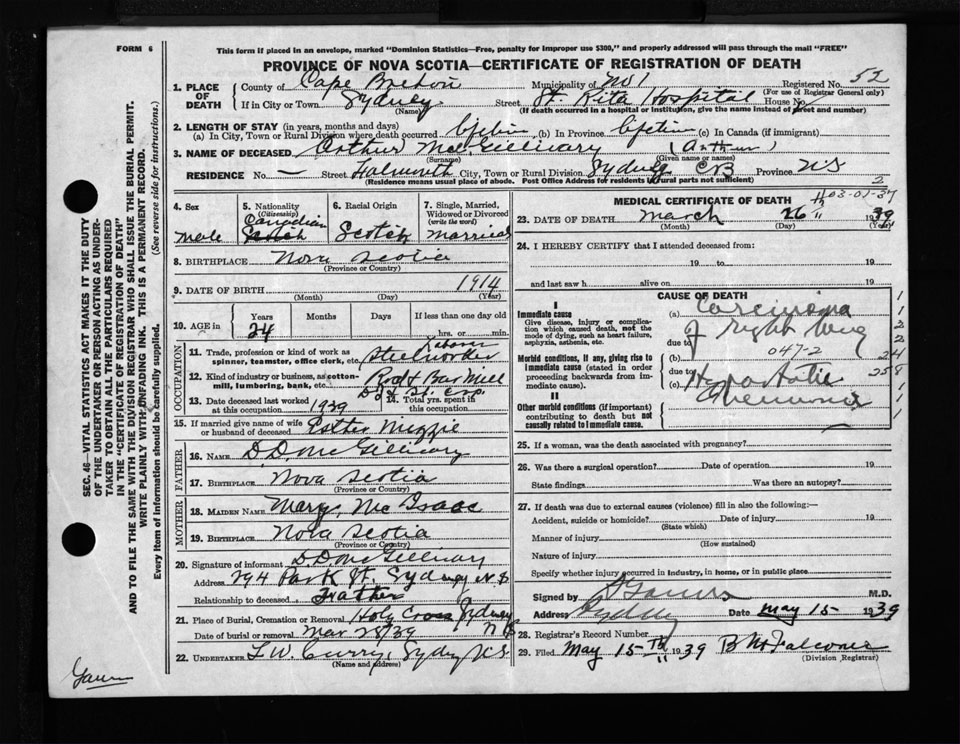 FORM 6
This form if placed in an envelope, marked "Dominion Statistics—Free, penalty for improper use $300," and properly addressed will pass through the mail "FREE"
PROVINCE OF NOVA SCOTIA—CERTIFICATE OF REGISTRATION OF DEATH
1. PLACE OF DEATH
County of Cape Breton Municipality of No 1 Registered No. 52
(For use of Registrar General only)
If in City or Town Sydney Street St. Rita Hospital House No
(Name) (If death occurred in a hospital or institution, give the name instead of street and number)
2. LENGTH OF STAY (in years, months and days)
(a) In City, Town or Rural Division where death occurred (b) In Province (c) In Canada (if immigrant)
3. NAME OF DECEASED Arthur McGillivary (Arthur)
(Surname) (Given name or names)
RESIDENCE No. — Street City, Town or Rural Division Sydney CB Province NS
(Residence means usual place of abode. Post Office Address for residents of rural parts not sufficient) 2
4. Sex
male
5. Nationality
(Citizenship)
Canadian
6. Racial Origin
Scotch
7. Single, Married, Widowed or Divorced
(write the word)
married
8. BIRTHPLACE Nova Scotia
(Province or Country)
9. DATE OF BIRTH 1914
(Month) (Day) (Year)
10. AGE in
Years Months Days If less than one day old
24 hrs. or min.
OCCUPATION
Laborer
11. Trade, profession or kind of work as spinner, teamster, office clerk, etc. Steelworker
12. Kind of industry or business, as cotton-mill, lumbering, bank, etc. Rod & Bar Mill
13. Date deceased last worked at this occupation 1939
14. Total yrs. spent in this occupation
15. If married give name of wife or husband of deceased Esther
FATHER
16. NAME D.D. McGillivary
17. BIRTHPLACE Nova Scotia
(Province or Country)
MOTHER
18. MAIDEN NAME Mary Mc Isaac
19. BIRTHPLACE Nova Scotia
(Province or Country)
20. Signature of informant D.D. McGillivary
Address 294 Park St. Sydney N.S
Relationship to deceased Father
21. Place of Burial, Cremation or Removal Holy Cross Sydney
Date of burial or removal Mar 28/39 N S
22. UNDERTAKER L W. Curry, Sydney N.S
(Name and address)
MEDICAL CERTIFICATE OF DEATH
H03-01-37
23. DATE OF DEATH March 26 1939
(Month) (Day) (Year)
24. I HEREBY CERTIFY that I attended deceased from:
19 to 19
and last saw h alive on 19
CAUSE OF DEATH
I
Immediate cause
Give disease, injury or complication which caused death, not the mode of dying, such as heart failure, asphyxia, asthenia, etc.
(a) Carcinoma
due to of right lung
Morbid conditions, if any, giving rise to immediate cause (stated in order proceeding backwards from immediate cause).
047-2
(b)
due to
(c) Hypostatic
Pneumonia
II
Other morbid conditions (if important) contributing to death but not causally related to immediate cause.
1
1
2
2
24
258
1
1
25. If a woman, was the death associated with pregnancy?
26. Was there a surgical operation? Date of operation 19
State findings Was there an autopsy?
27. If death was due to external causes (violence) fill in also the following:—
Accident, suicide or homicide? Date of injury 19
(State which)
Manner of injury
(How sustained)
Nature of injury
Specify whether injury occurred in industry, in home, or in public place
Signed by M.D.
Address Sydney Date May 15 1939
28. Registrar's Record Number
29. Filed May 15th 1939 B McFalconer
(Division Registrar)
SEC. 46—VITAL STATISTICS ACT MAKES IT THE DUTY OF THE UNDERTAKER OR PERSON ACTING AS UNDERTAKER TO OBTAIN ALL THE PARTICULARS REQUIRED IN THE "CERTIFICATE OF REGISTRATION OF DEATH" AND TO FILE THE SAME WITH THE DIVISION REGISTRAR WHO SHALL ISSUE THE BURIAL PERMIT.
WRITE PLAINLY WITH UNFADING INK. THIS IS A PERMANENT RECORD.
Every item of information should be carefully supplied. (See reverse side for instructions.)